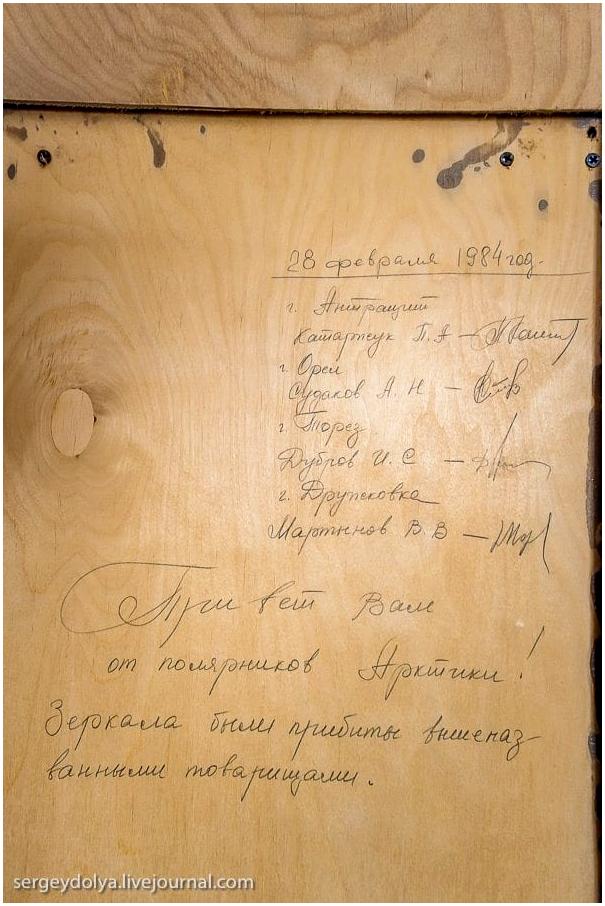 28 февраля 1984 год.
г. Антрацит
Катаржук П. А —
г. Орел
Судаков А. Н —
г. Торез
Дубров И. С —
г. Дружковка
Мартынов В. В —
Привет Вам
от полярников Арктики!
Зеркала были прибиты вышеназ-
ванными товарищами.
sergeydolya.livejournal.com